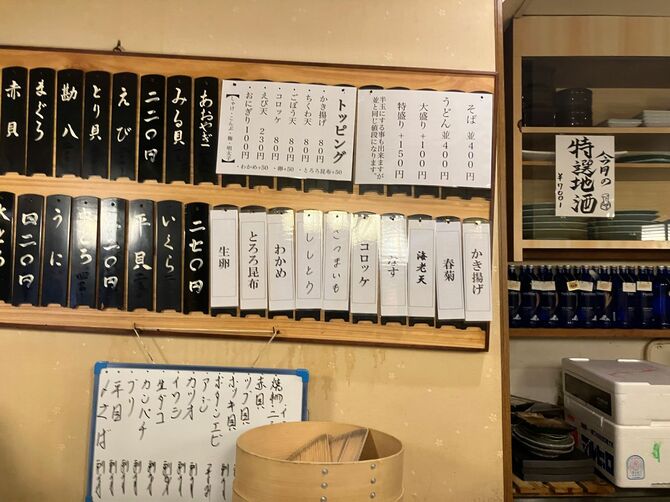 あおやぎ
みる貝
二二〇円
えび
とり貝
勘八
まぐろ
赤貝
そば 並400円
うどん 並400円
大盛り+100円
特盛り+150円
半玉にする事も出来ますが
並と同じ値段になります。
トッピング
かき揚げ 80円
ちくわ天 80円
ごぼう天 80円
コロッケ 80円
えび天 230円
おにぎり100円
・わかめ+50 ・卵+50 ・とろろ昆布+50
かき揚げ
春菊
海老天
なす
コロッケ
さつまいも
ししとう
わかめ
とろろ昆布
生卵
二七〇円
いくら
平貝
うに
四二〇円
今月の
特選地酒
赤貝
ツブ貝
ホッキ貝
ボタンエビ
アジ
カツオ
イワシ
生ダコ
カンパチ
ブリ
平目